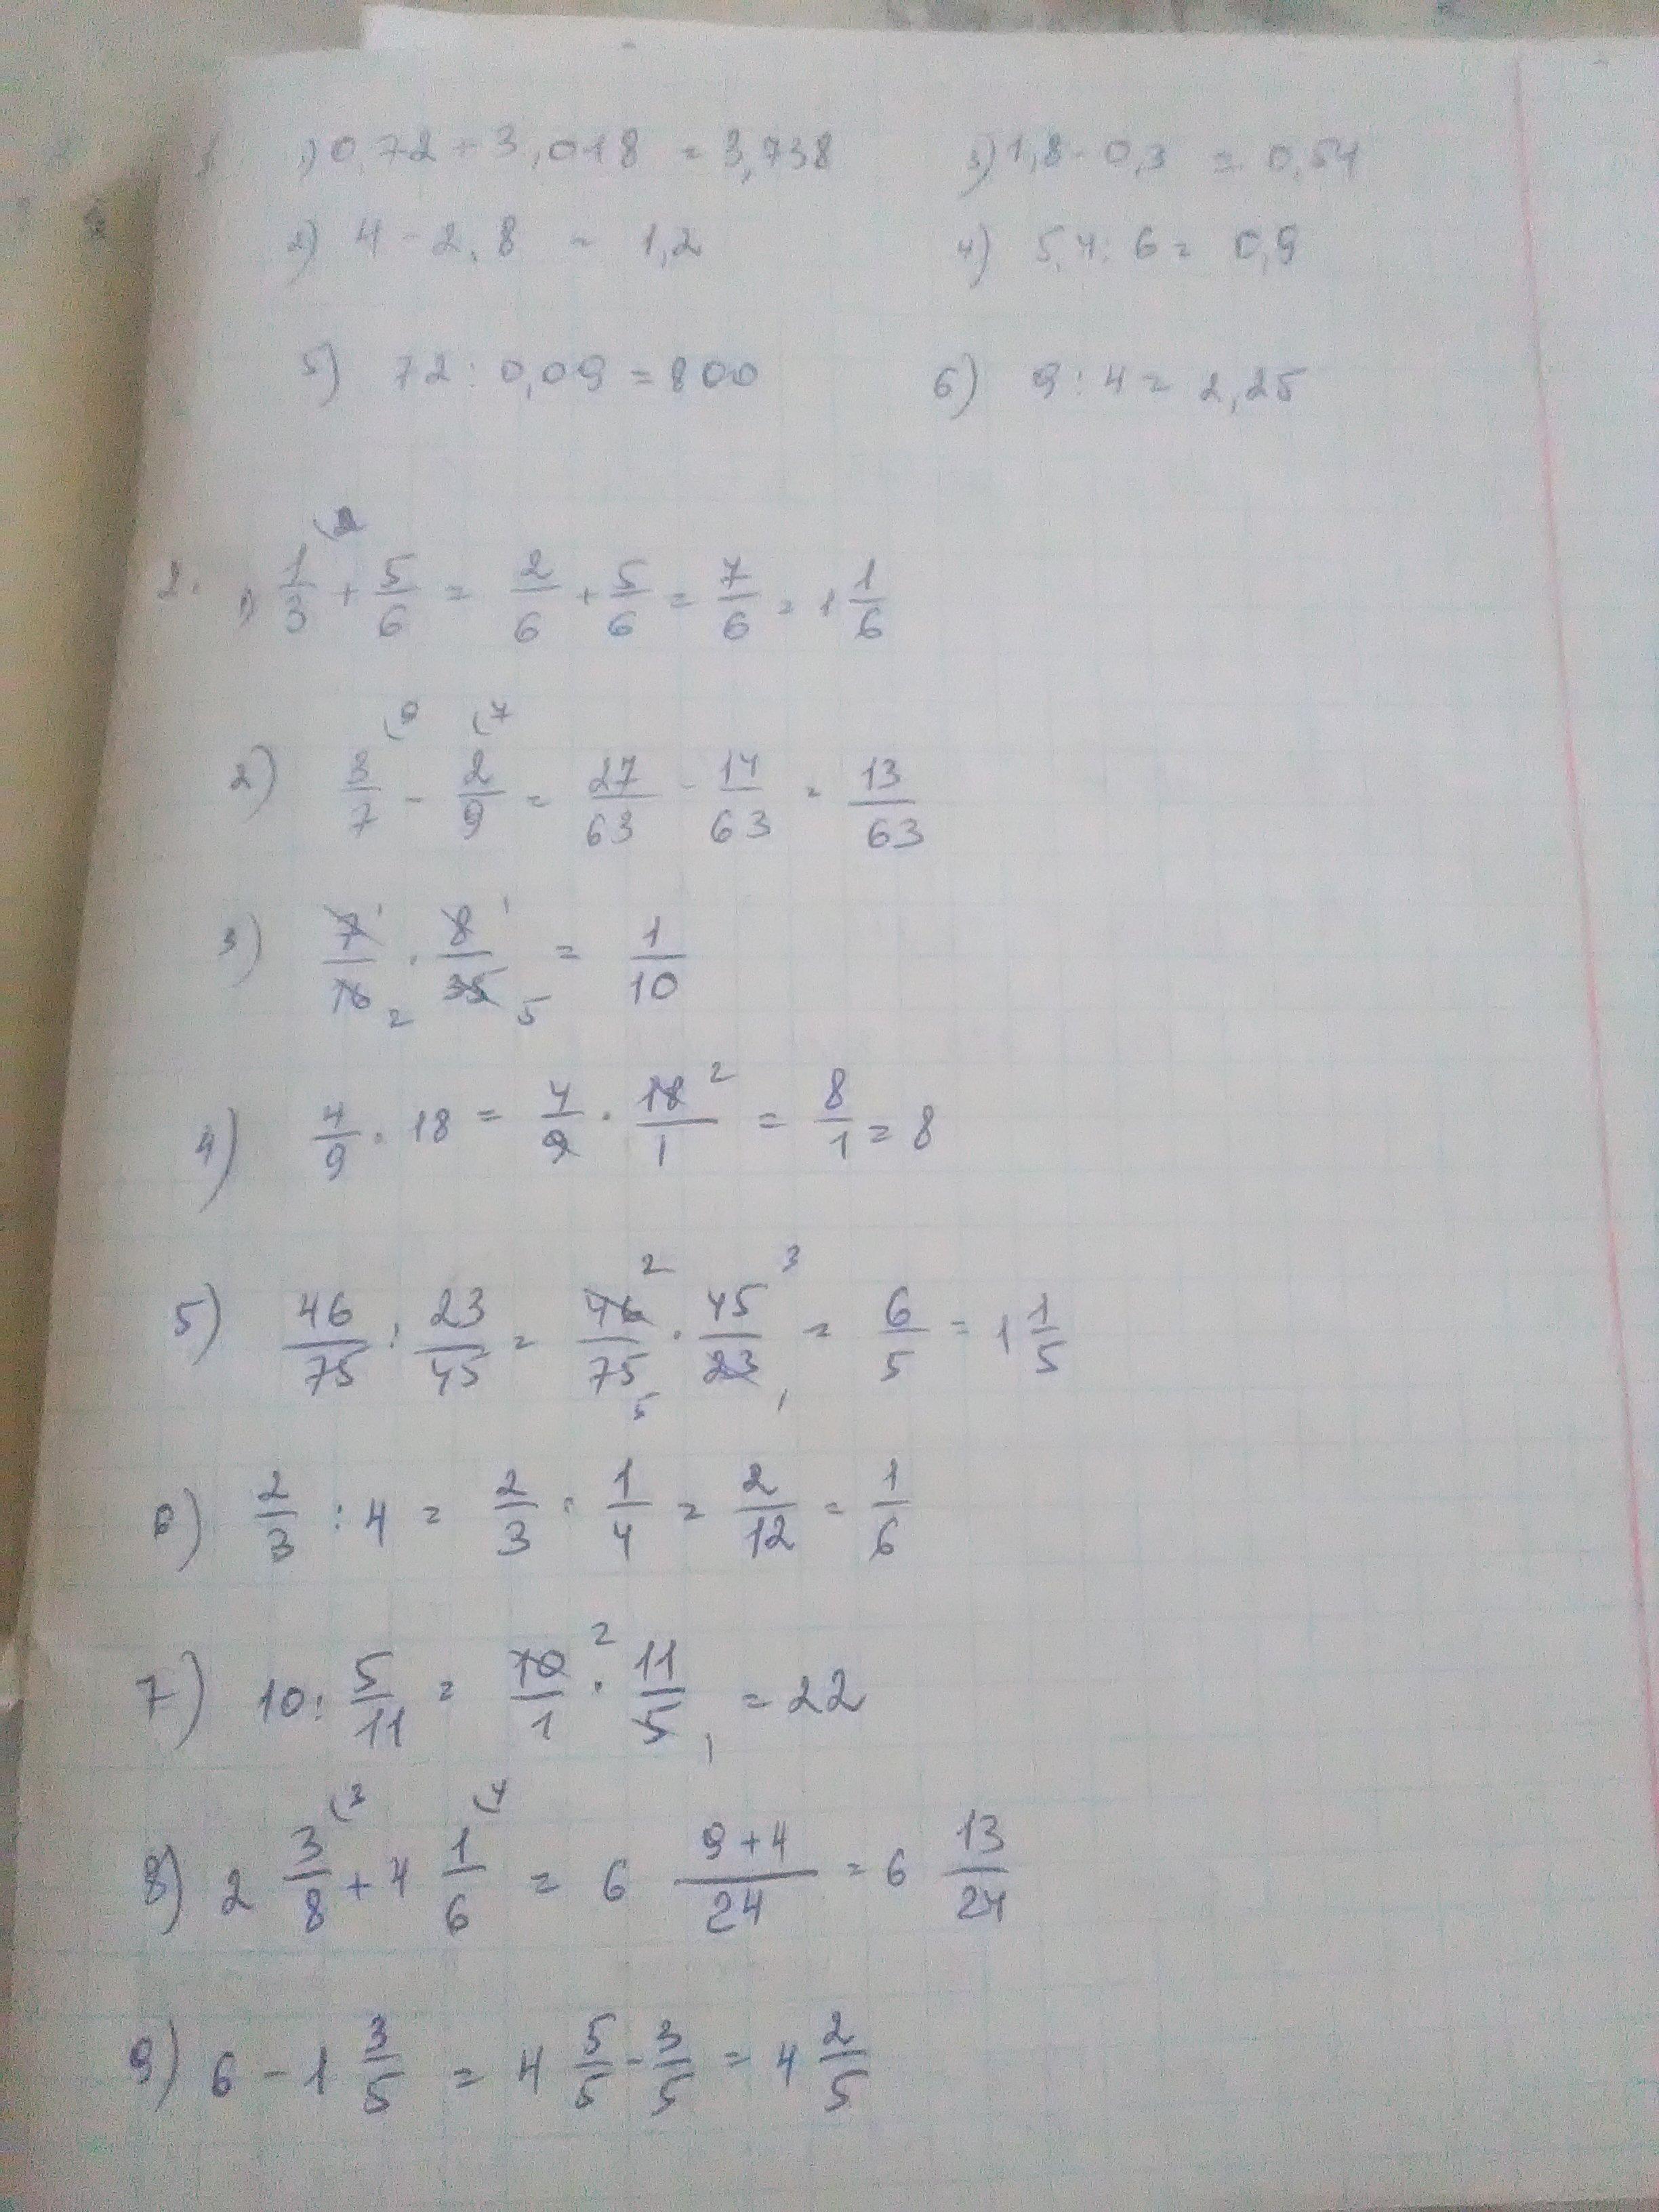 1. 1) 0,72 + 3,018 = 3,738 3) 1,8 · 0,3 = 0,54
2) 4 - 2,8 = 1,2 4) 5,4 : 6 = 0,9
5) 72 : 0,09 = 800 6) 9 : 4 = 2,25
2. 1) 1/3 (2 + 5/6 = 2/6 + 5/6 = 7/6 = 1 1/6
2) 3/7 (9 - 2/9 (7 = 27/63 - 14/63 = 13/63
3) 7 1/16 2 · 8 1/35 5 = 1/10
4) 4/9 · 18 = 4/9 · 18 2/1 = 8/1 = 8
5) 46/75 : 23/45 = 46 2/75 5 · 45 3/23 1 = 6/5 = 1 1/5
6) 2/3 : 4 = 2/3 · 1/4 = 2/12 = 1/6
7) 10 : 5/11 = 10 2/1 · 11/5 1 = 22
8) 2 3/8 (3 + 4 1/6 (4 = 6 9+4/24 = 6 13/24
9) 6 - 1 3/5 = 4 5/5 - 3/5 = 4 2/5